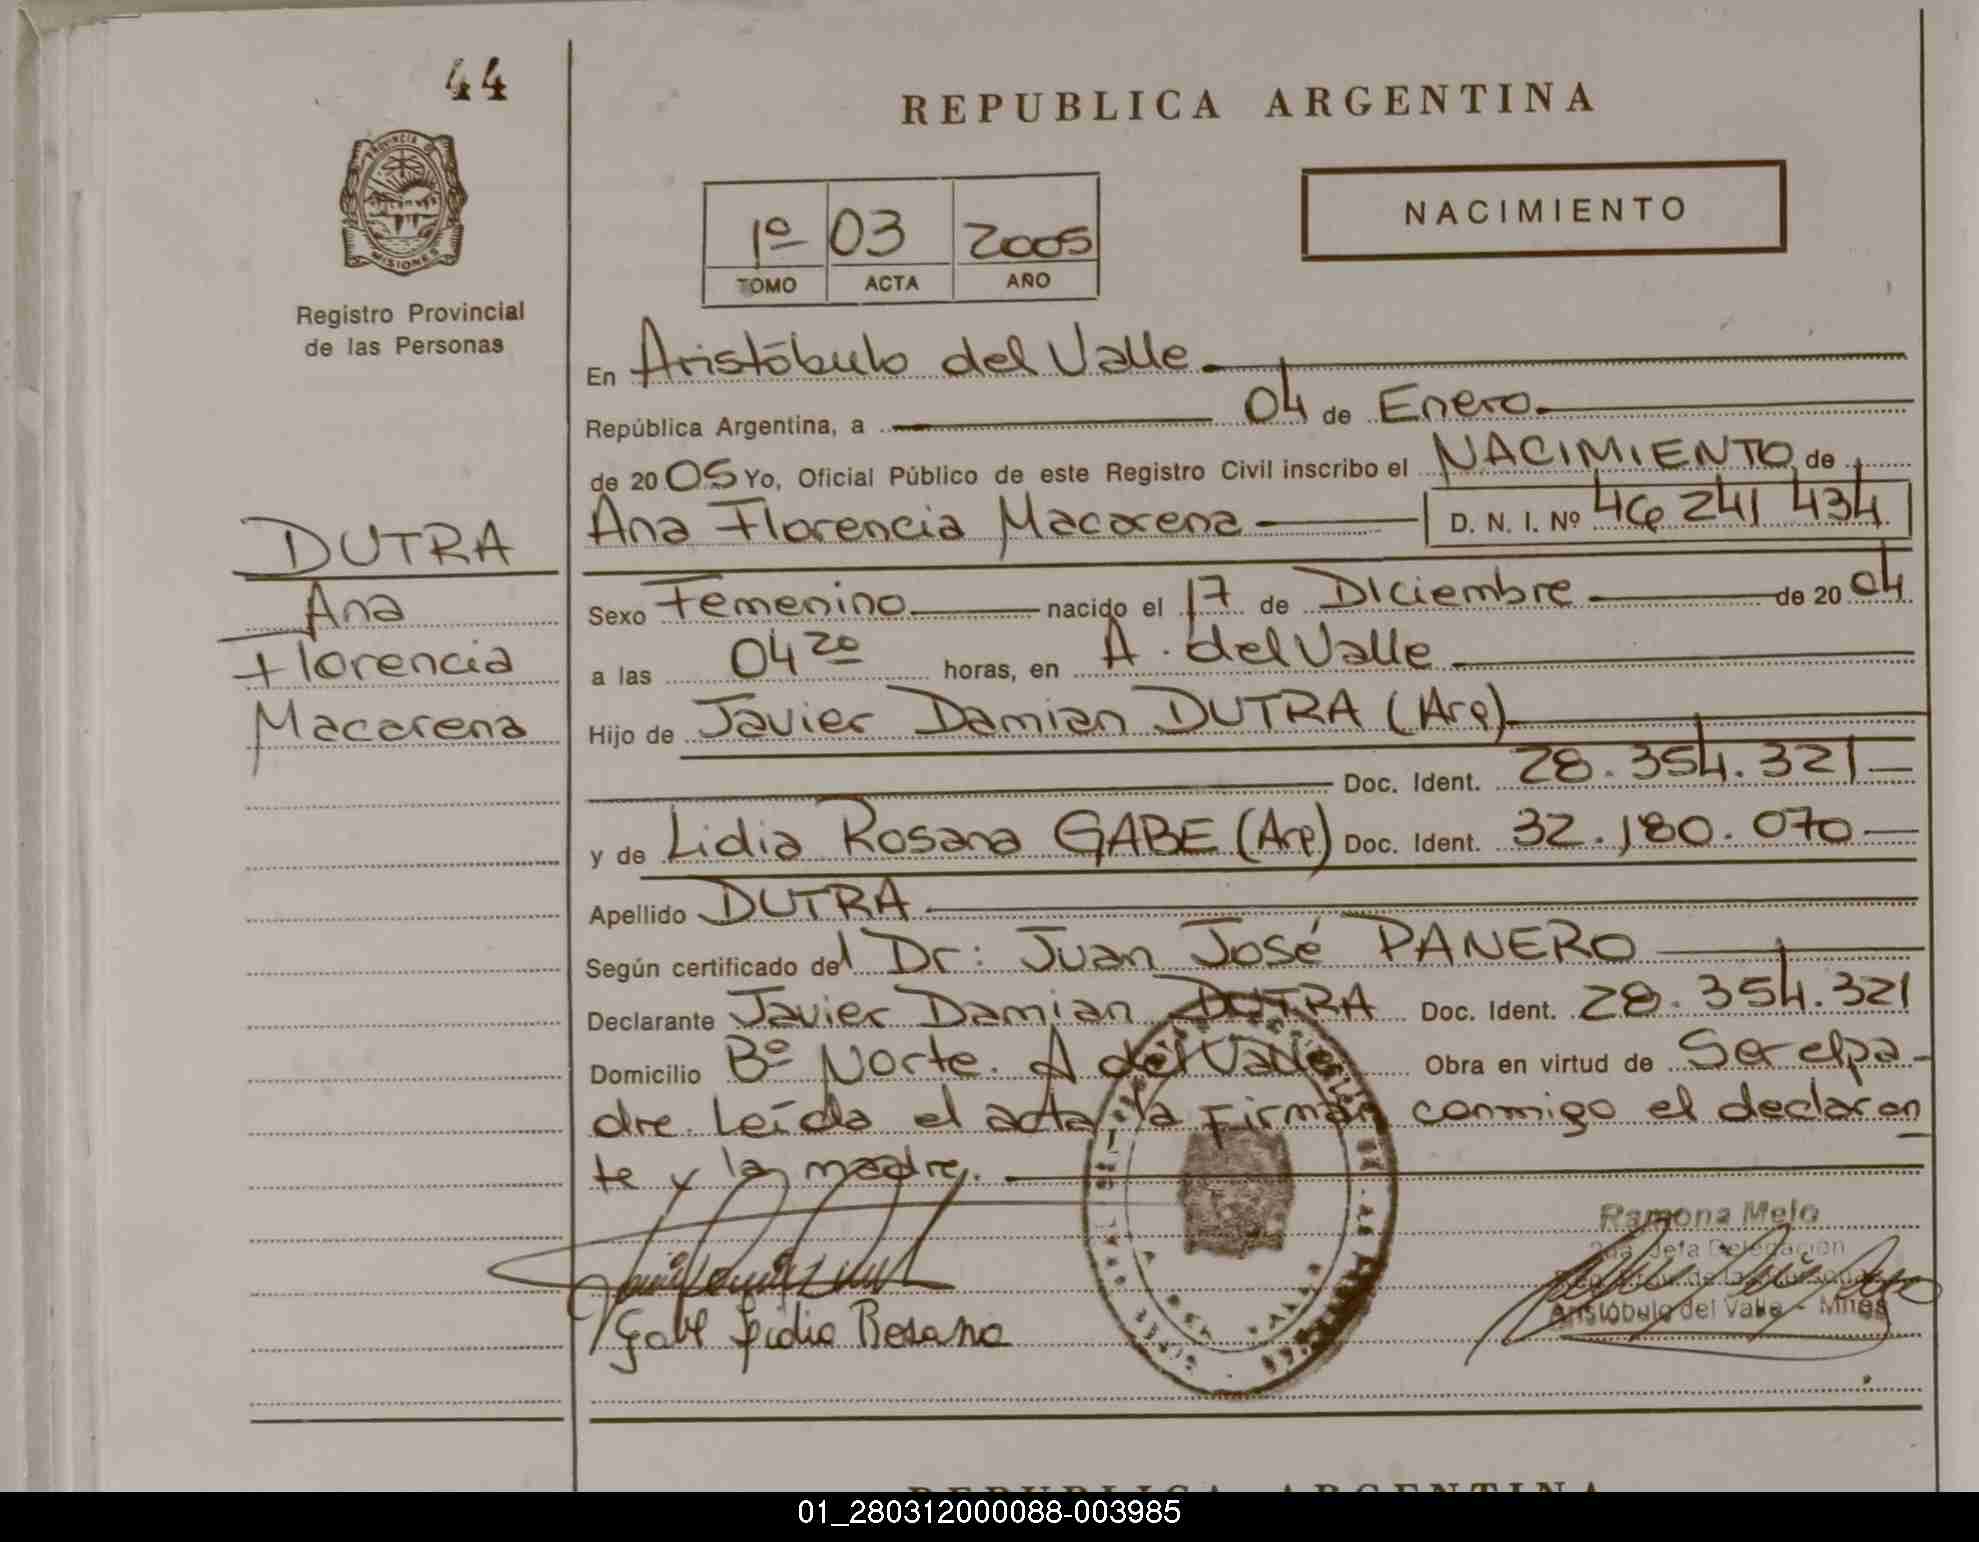 44
REPUBLICA ARGENTINA
PROVINCIA DE
MISIONES
Registro Provincial
de las Personas
1º 03 2005
TOMO ACTA AÑO
NACIMIENTO
En Aristóbulo del Valle
República Argentina, a 04 de Enero
de 20 05 Yo, Oficial Público de este Registro Civil inscribo el NACIMIENTO de
Ana Florencia Macarena D. N. I. Nº 46 241 434
DUTRA
Ana
Florencia
Macarena
Sexo Femenino nacido el 17 de Diciembre de 20 04
a las 04 20 horas, en A. del Valle
Hijo de Javier Damian DUTRA (Arg)
Doc. Ident. 28.354.321
y de Lidia Rosana GABE (Arg) Doc. Ident. 32.180.070
Apellido DUTRA
Según certificado del Dr: Juan José PANERO
Declarante Javier Damian DUTRA Doc. Ident. 28.354.321
Domicilio Bº Norte. A del Valle Obra en virtud de Ser el pa-
dre. Leída el acta, la firman conmigo el declaran
te y la madre.
Ramona Melo
2da. Jefa Delegación
Aristóbulo del Valle - Mnes
Gabe Lidia Rosana
REPUBLICA ARGENTINA
01_280312000088-003985